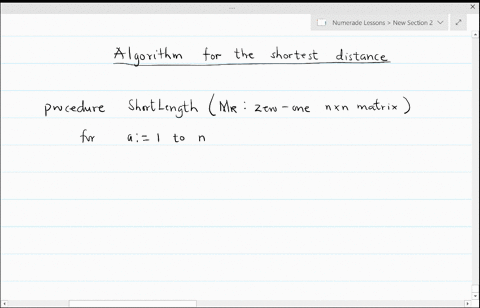 Numerade Lessons > New Section 2
Algorithm for the shortest distance
procedure ShortLength (MR : zero-one n×n matrix)
for a:= 1 to n